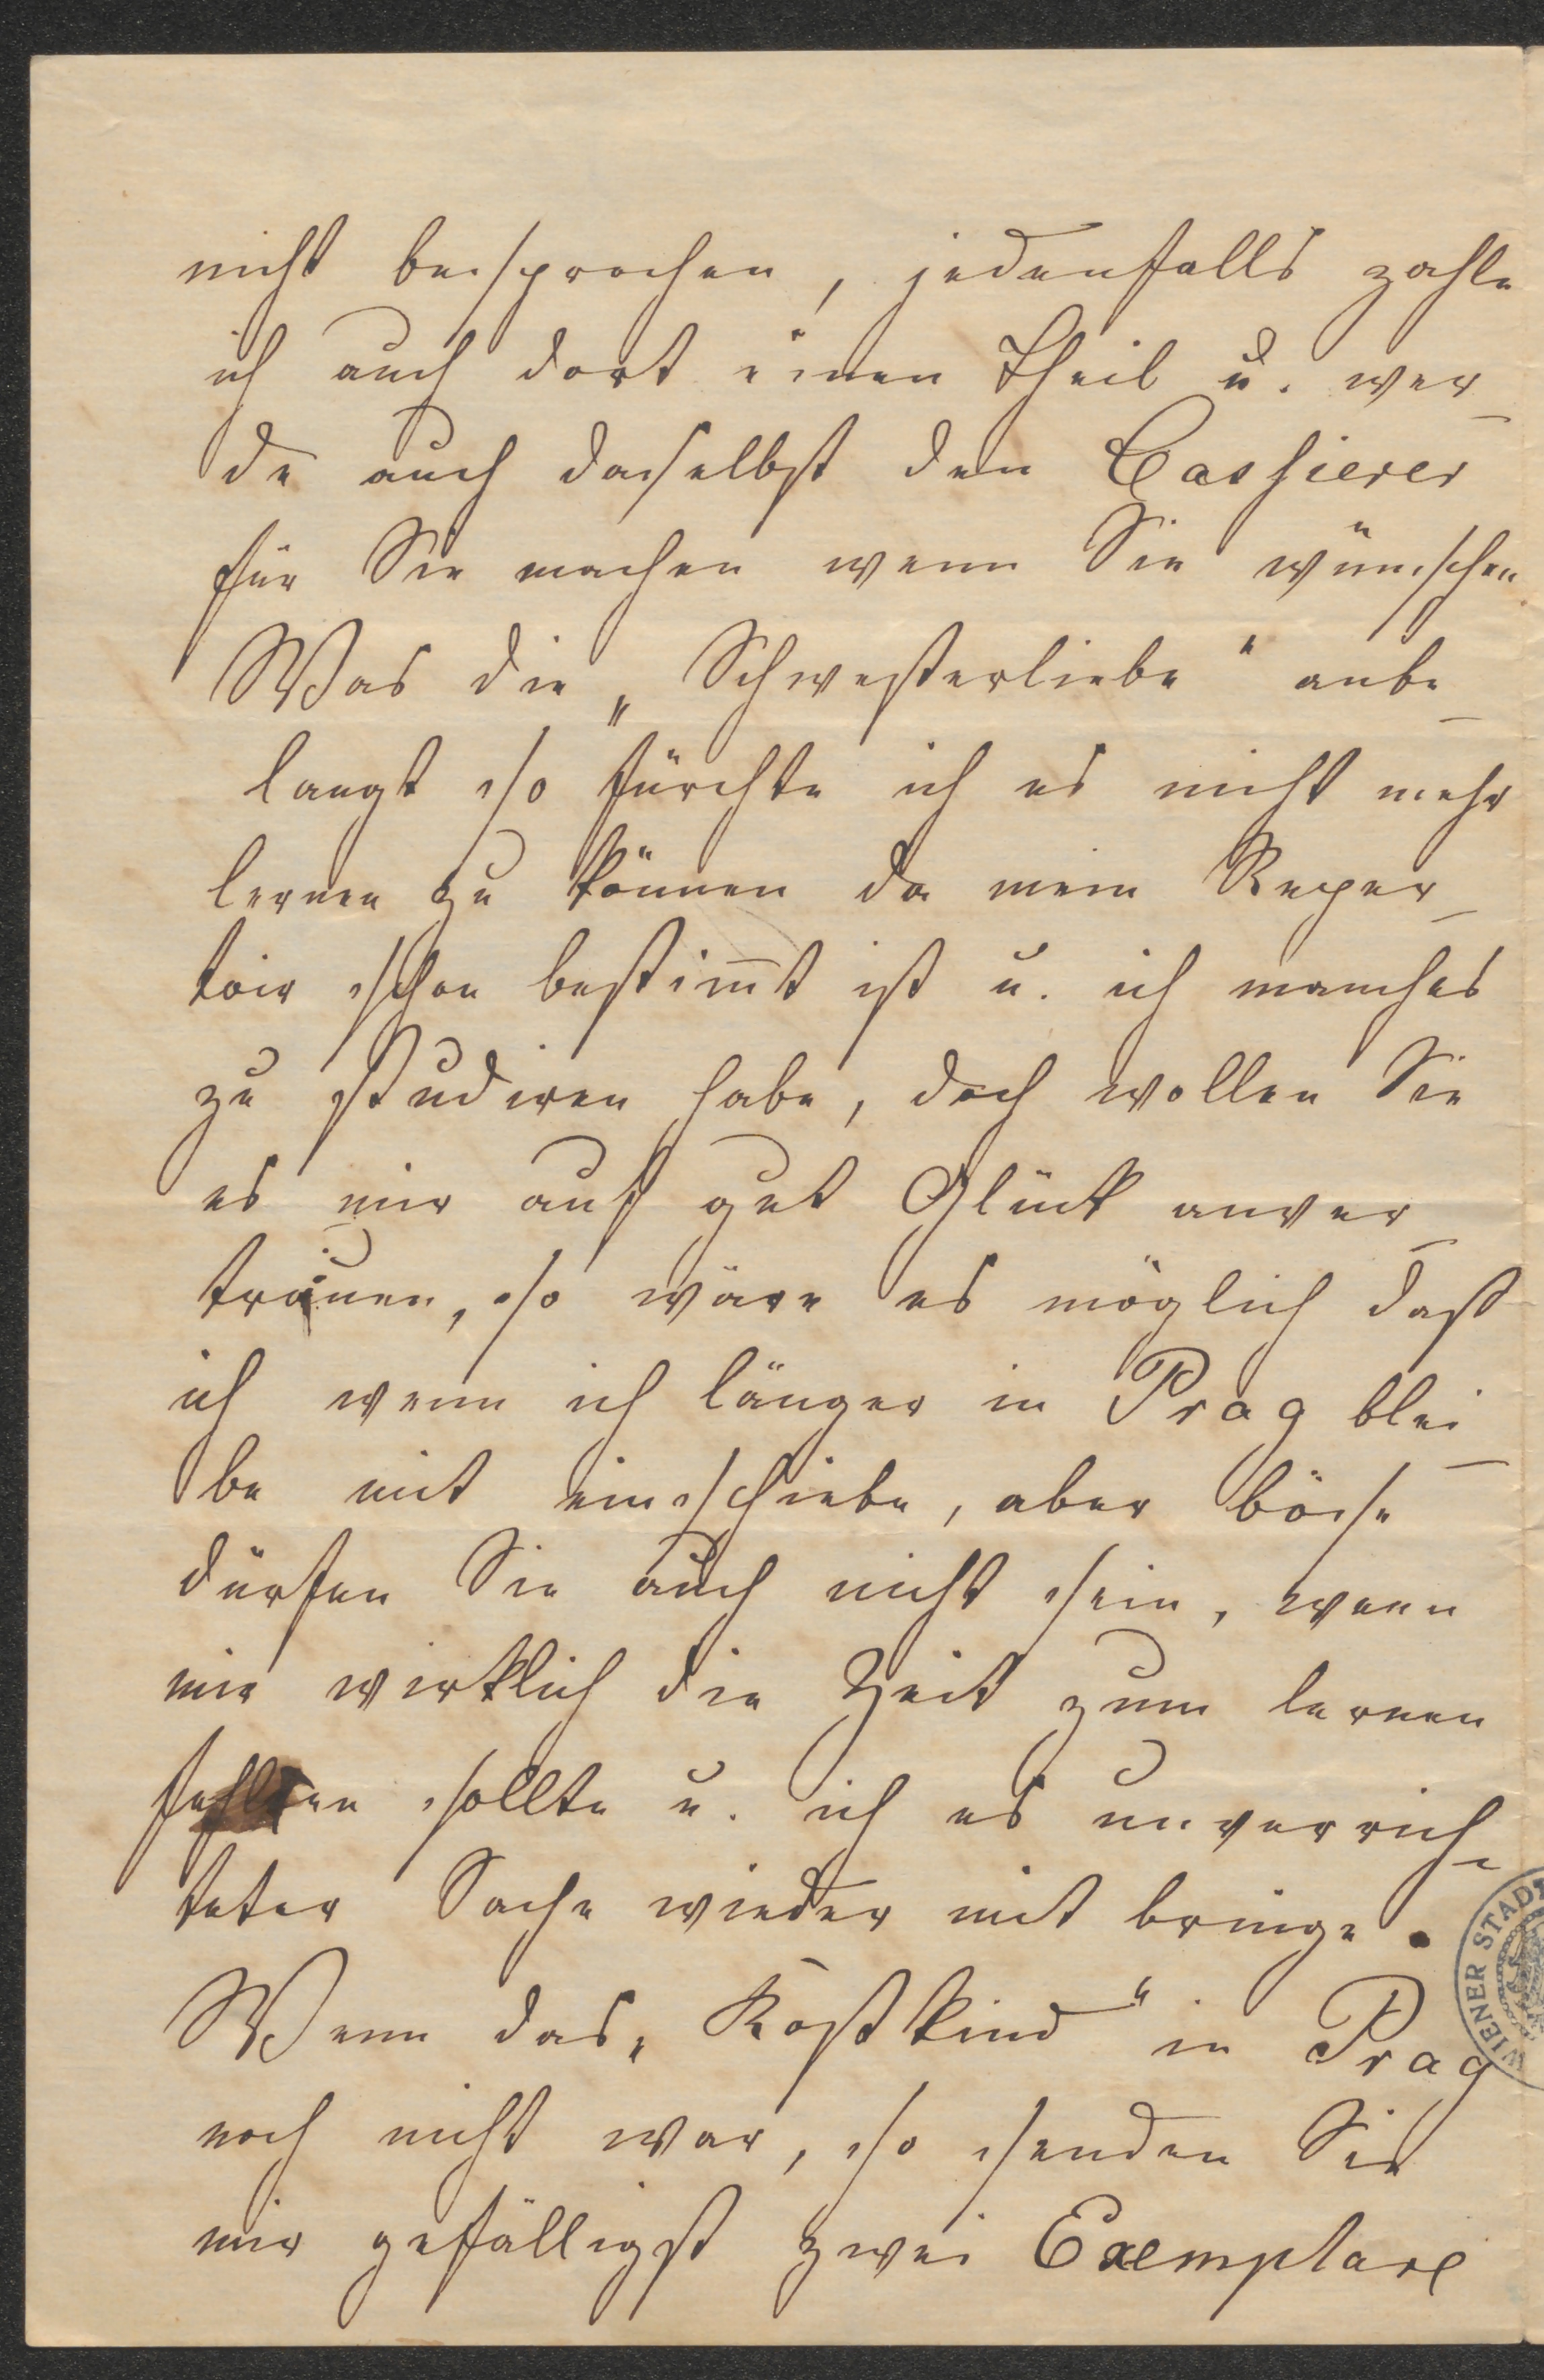 nicht besprochen, jedenfalls zahle
ich auch dort einen Theil u. wer_
de auch daselbst den Cassierer
für Sie machen wenn Sie wünschen.
Was die „Schwesterliebe" anbe_
langt so fürchte ich es nicht mehr
lernen zu können da mein Reper_
toir schon bestim̅t ist u. ich manches
zu studiren habe, doch wollen Sie
es mir auf gut Glück anver_
trauen, so wäre es möglich daß
ich wenn ich länger in Prag blei_
be mit einschiebe, aber böse
dürfen Sie auch nicht sein, wenn
mir wirklich die Zeit zum lernen
fehlen sollte u. ich es unverrich_
teter Sache wieder mit bringe.
Wenn das „Kostkind" in Prag
noch nicht war, so senden Sie
mir gefälligst zwei Exemplare
WIENER STADT